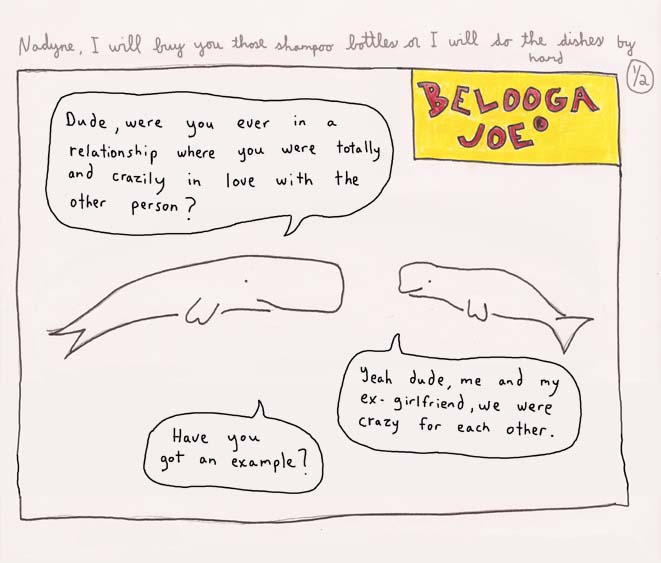 Nadyne, I will buy you those shampoo bottles or I will do the dishes by
hard
1/2
BELOOGA
JOE®
Dude, were you ever in a
relationship where you were totally
and crazily in love with the
other person?
Yeah dude, me and my
ex-girlfriend, we were
crazy for each other.
Have you
got an example?